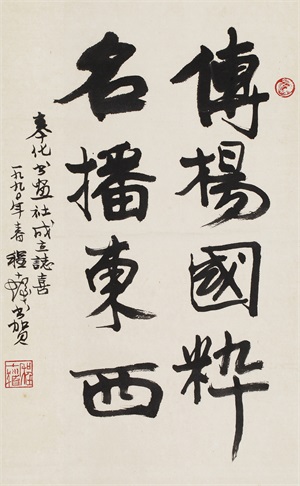 傳楊國粹
名播東西
奉化書畫社成立誌喜
一九九〇年春程十髮書賀